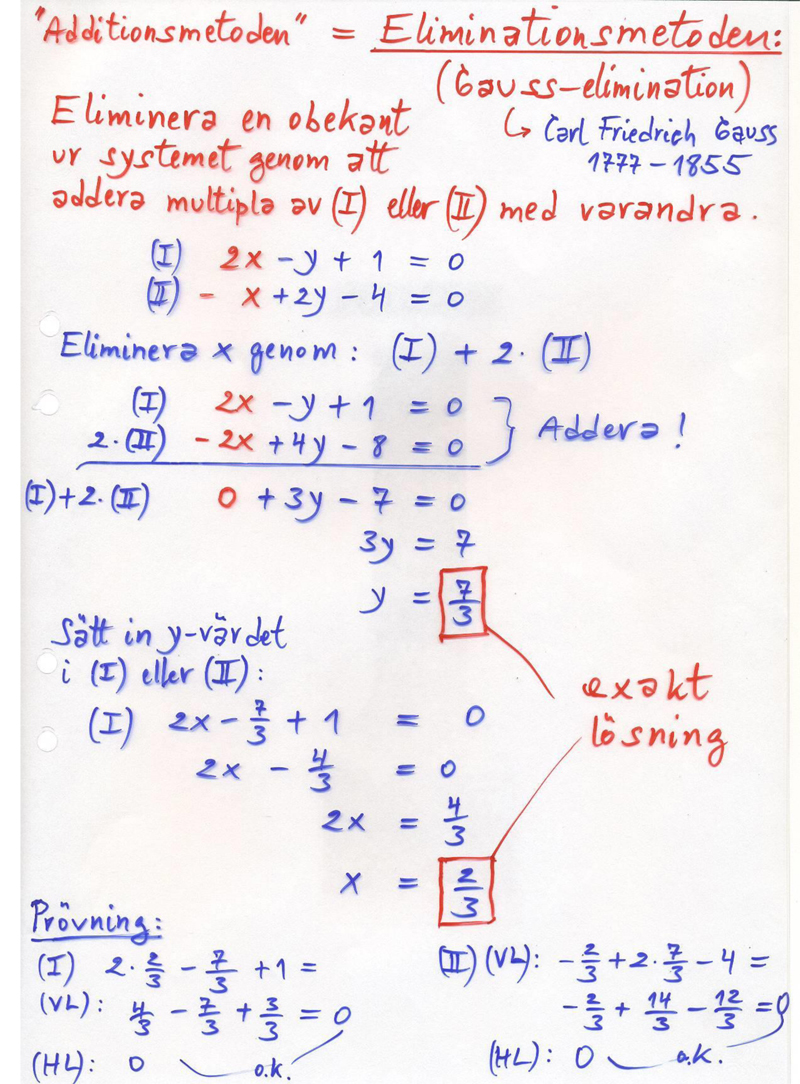 "Additionsmetoden" = Eliminationsmetoden:
(Gauss-elimination)
↳ Carl Friedrich Gauss
1777 – 1855
Eliminera en obekant
ur systemet genom att
addera multipla av (I) eller (II) med varandra.
(I) 2x - y + 1 = 0
(II) - x + 2y - 4 = 0
Eliminera x genom: (I) + 2·(II)
(I) 2x - y + 1 = 0
2·(II) - 2x + 4y - 8 = 0 } Addera!
(I)+2·(II) 0 + 3y - 7 = 0
3y = 7
y = 7/3
Sätt in y-värdet
i (I) eller (II):
exakt
lösning
(I) 2x - 7/3 + 1 = 0
2x - 4/3 = 0
2x = 4/3
x = 2/3
Prövning:
(I) 2·2/3 - 7/3 + 1 =
(VL): 4/3 - 7/3 + 3/3 = 0
(HL): 0 o.k.
(II) (VL): -2/3 + 2·7/3 - 4 =
-2/3 + 14/3 - 12/3 = 0
(HL): 0 o.k.